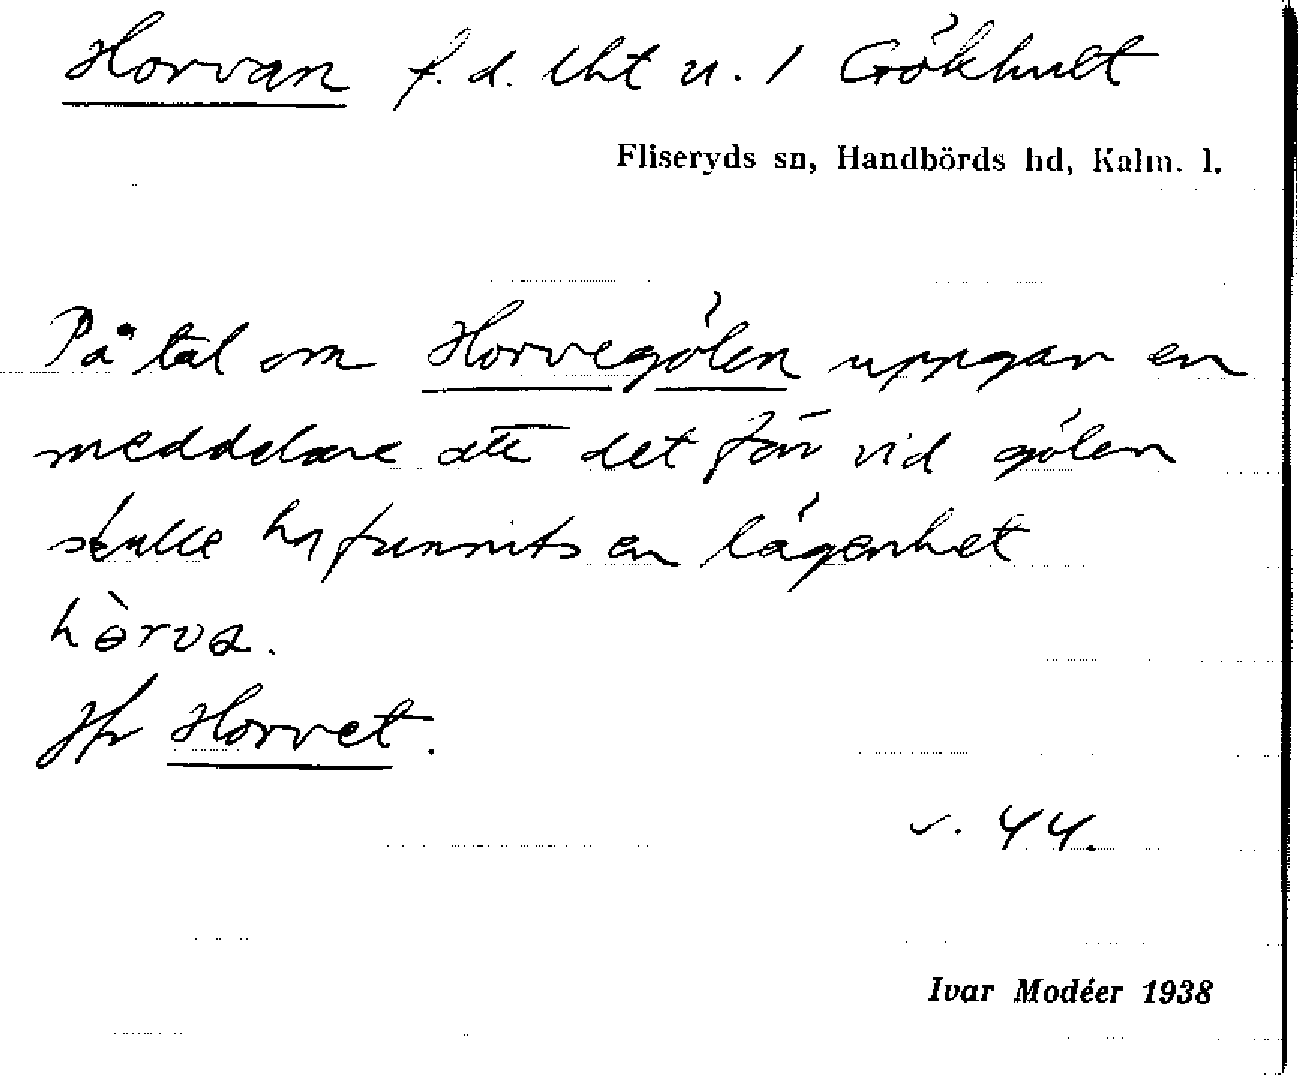 Horvan f.d. lht u. 1 Gökhult
Fliseryds sn, Handbörds hd, Kalm. l.
På tal om Horvegölen uppgav en
meddelare att det förr vid gölen
skulle ha funnits en lägenhet
hòrva.
Jfr Horvet.
v. 44.
Ivar Modéer 1938